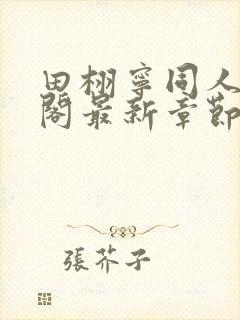 田栩寧同人
閣最新章節
張芥子